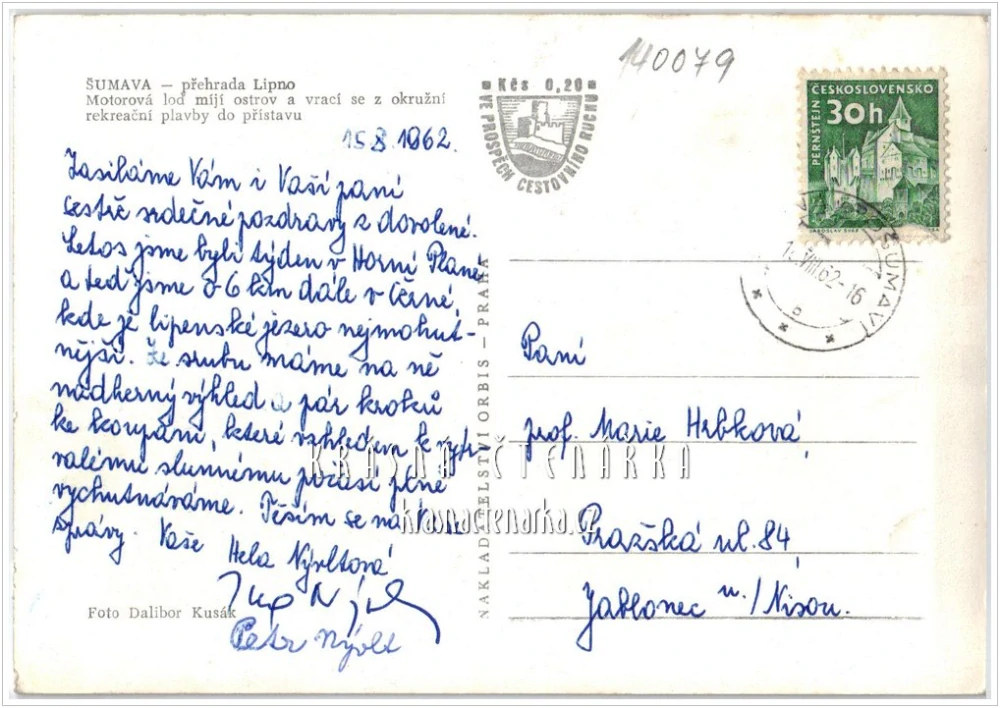 ŠUMAVA — přehrada Lipno
Motorová loď míjí ostrov a vrací se z okružní
rekreační plavby do přístavu
140079
Kčs 0,20
VE PROSPĚCH CESTOVNÍHO RUCHU
ČESKOSLOVENSKO
30h
PERNŠTEJN
ŠUMAVĚ
VIII.62-16
15.8.1962.
Zasíláme Vám i Vaší paní
sestře srdečné pozdravy z dovolené.
Letos jsme byli týden v Horní Plané
a teď jsme o 6 km dále v Černé,
kde je lipenské jezero nejmohut-
nější. Ze srubu máme na ně
nádherný výhled a pár kroků
ke koupání, které vzhledem k vytr-
valému slunnému počasí plně
vychutnáváme. Těším se na Vaše
zprávy. Vaše Hela Nývltová
Petr Nývlt
Foto Dalibor Kusák
NAKLADATELSTVÍ ORBIS — PRAHA
Paní
prof. Marie Hrbková,
Pražská ul. 84,
Jablonec n./Nisou.
KRÁSNÁ ČTENÁŘKA
krasnactenarka.cz